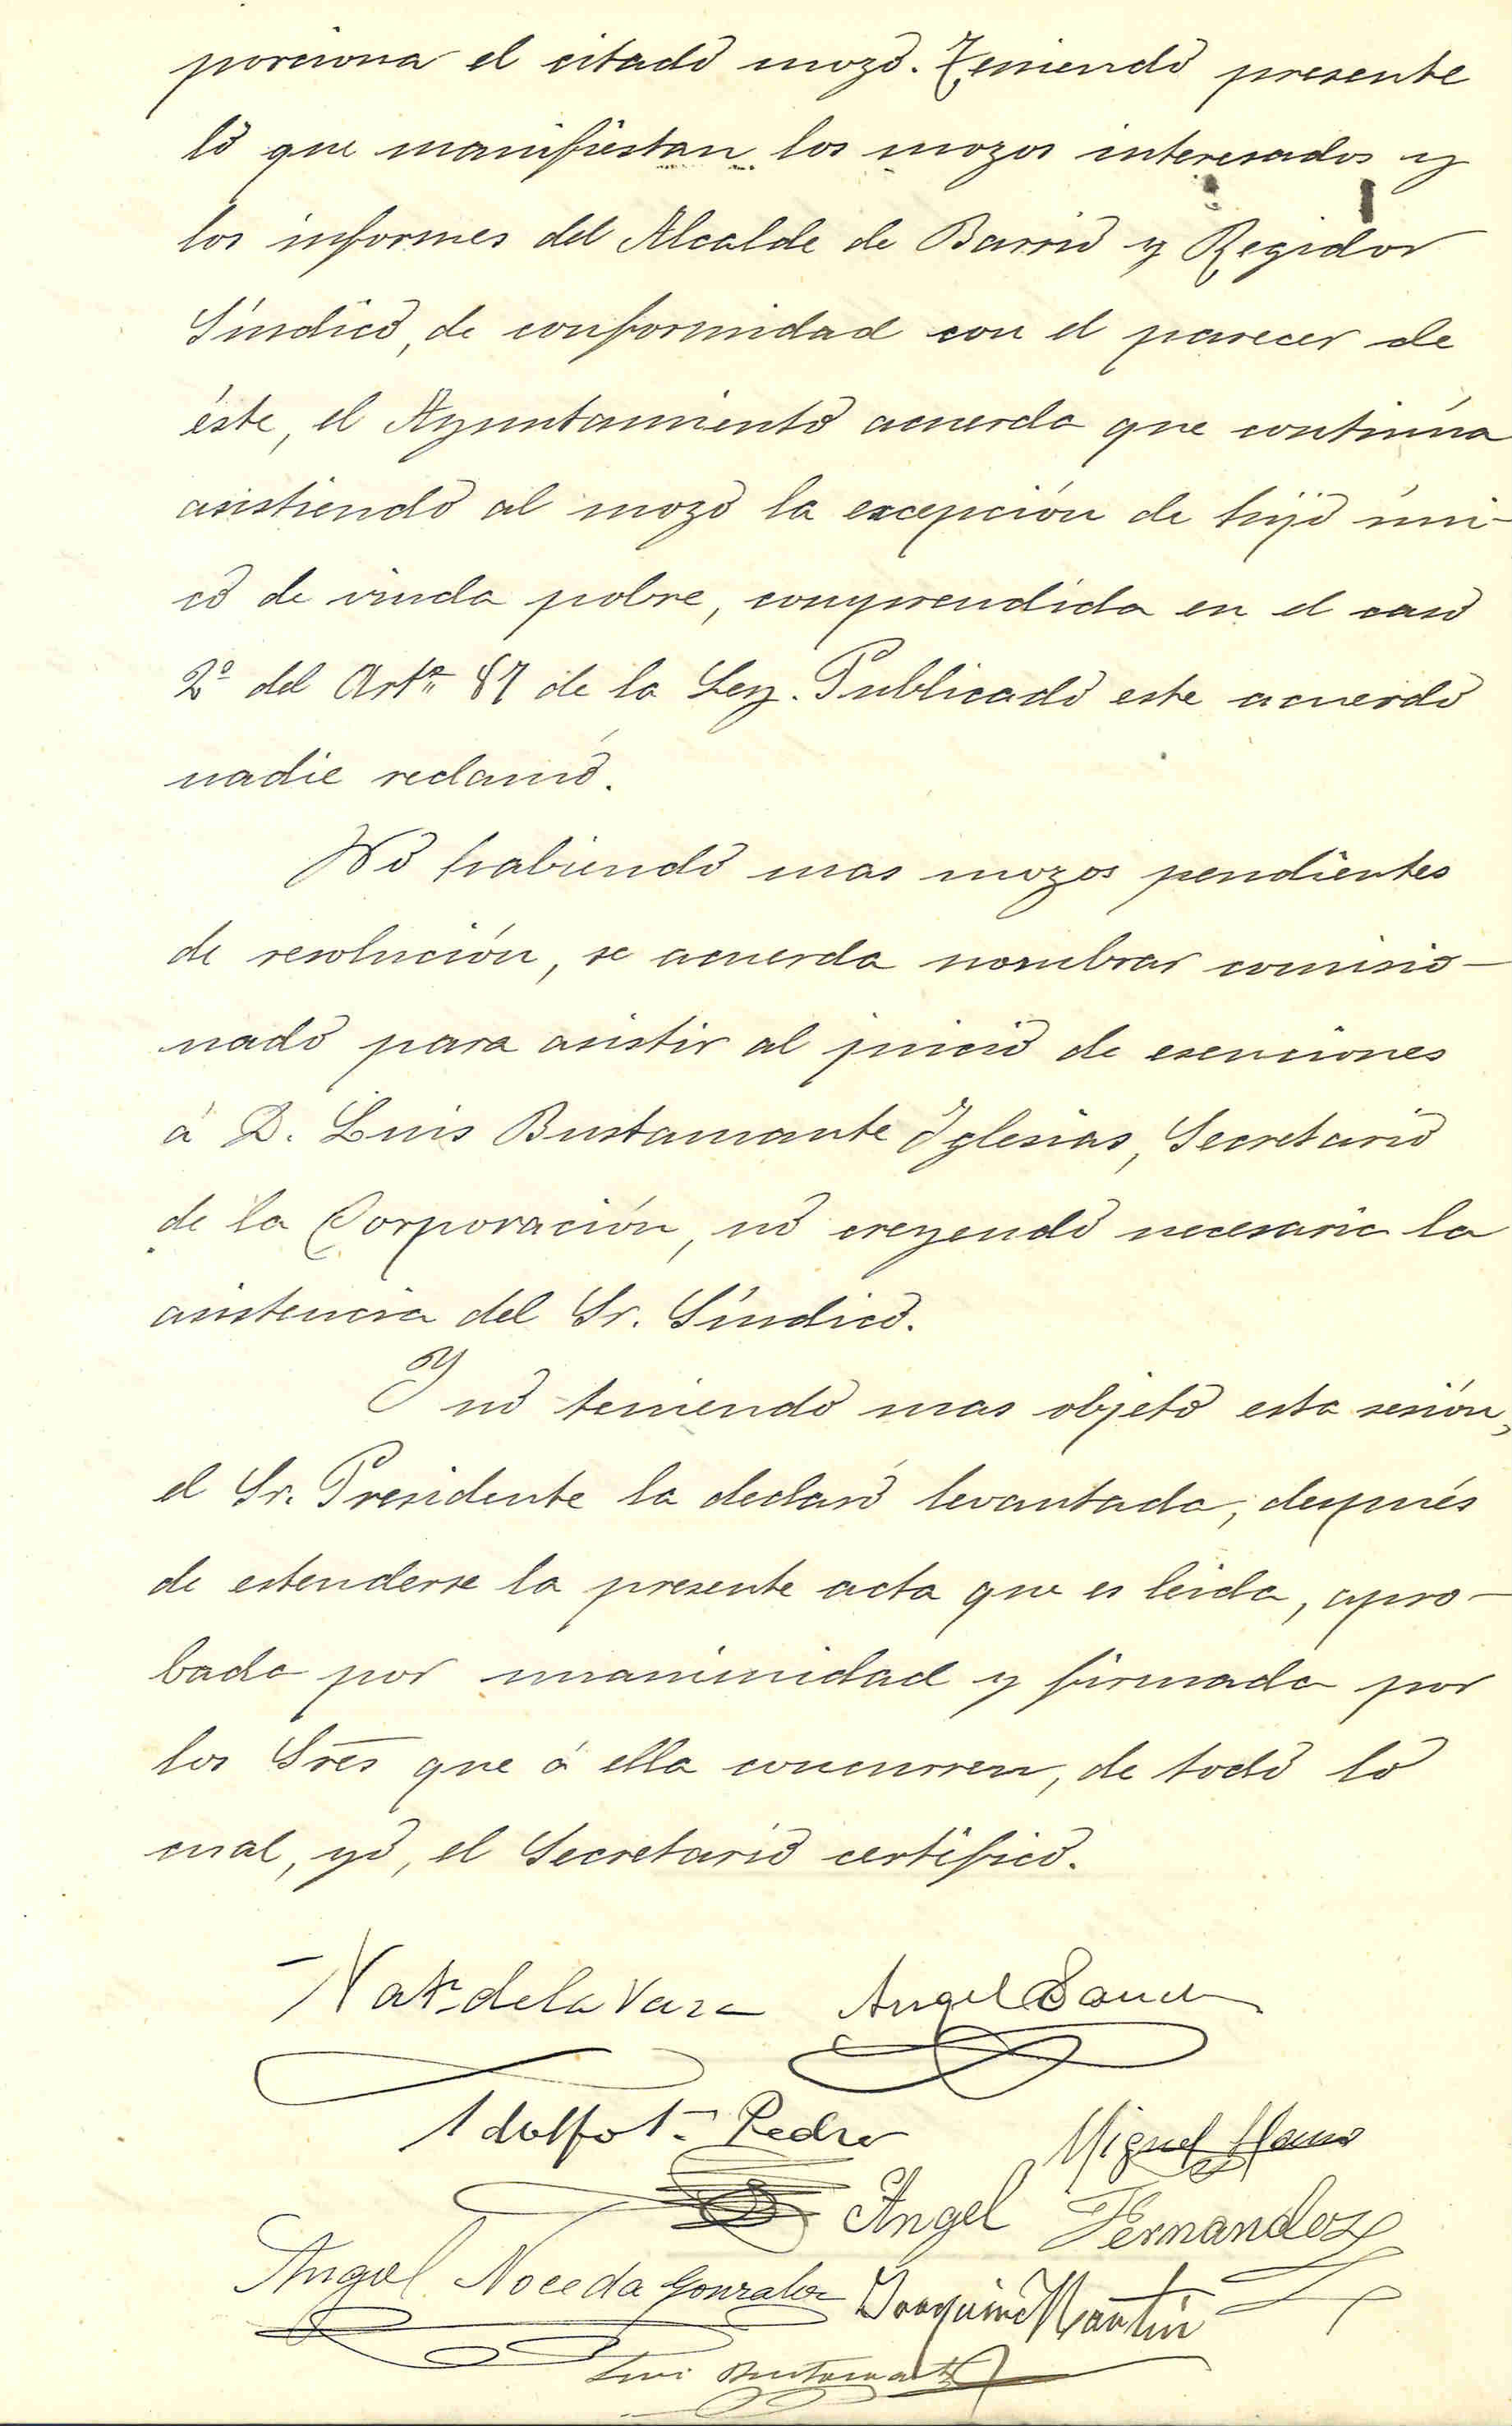 porciona el citado mozo. Teniendo presente
lo que manifiestan los mozos interesados y
los informes del Alcalde de Barrio y Regidor
Síndico, de conformidad con el parecer de
éste, el Ayuntamiento acuerda que continúa
asistiendo al mozo la excepción de hijo úni-
co de viuda pobre, comprendida en el caso
2º del Artº 87 de la Ley. Publicado este acuerdo
nadie reclamó.
No habiendo mas mozos pendientes
de resolución, se acuerda nombrar comisio-
nado para asistir al juicio de esenciones
á D. Luis Bustamante Iglesias, Secretario
de la Corporación, no creyendo necesaria la
asistencia del Sr. Síndico.
Y no teniendo mas objeto esta sesión,
el Sr. Presidente la declaró levantada, después
de estenderse la presente acta que es leida, apro-
bada por unanimidad y firmada por
los Sres que á ella concurren, de todo lo
cual, yo, el Secretario certifico.
de la Angel
Adolfo Pedro Miguel
Angel Fernandez
Angel Noceda Gonzalez Joaquin Martín
Luis Bustamante